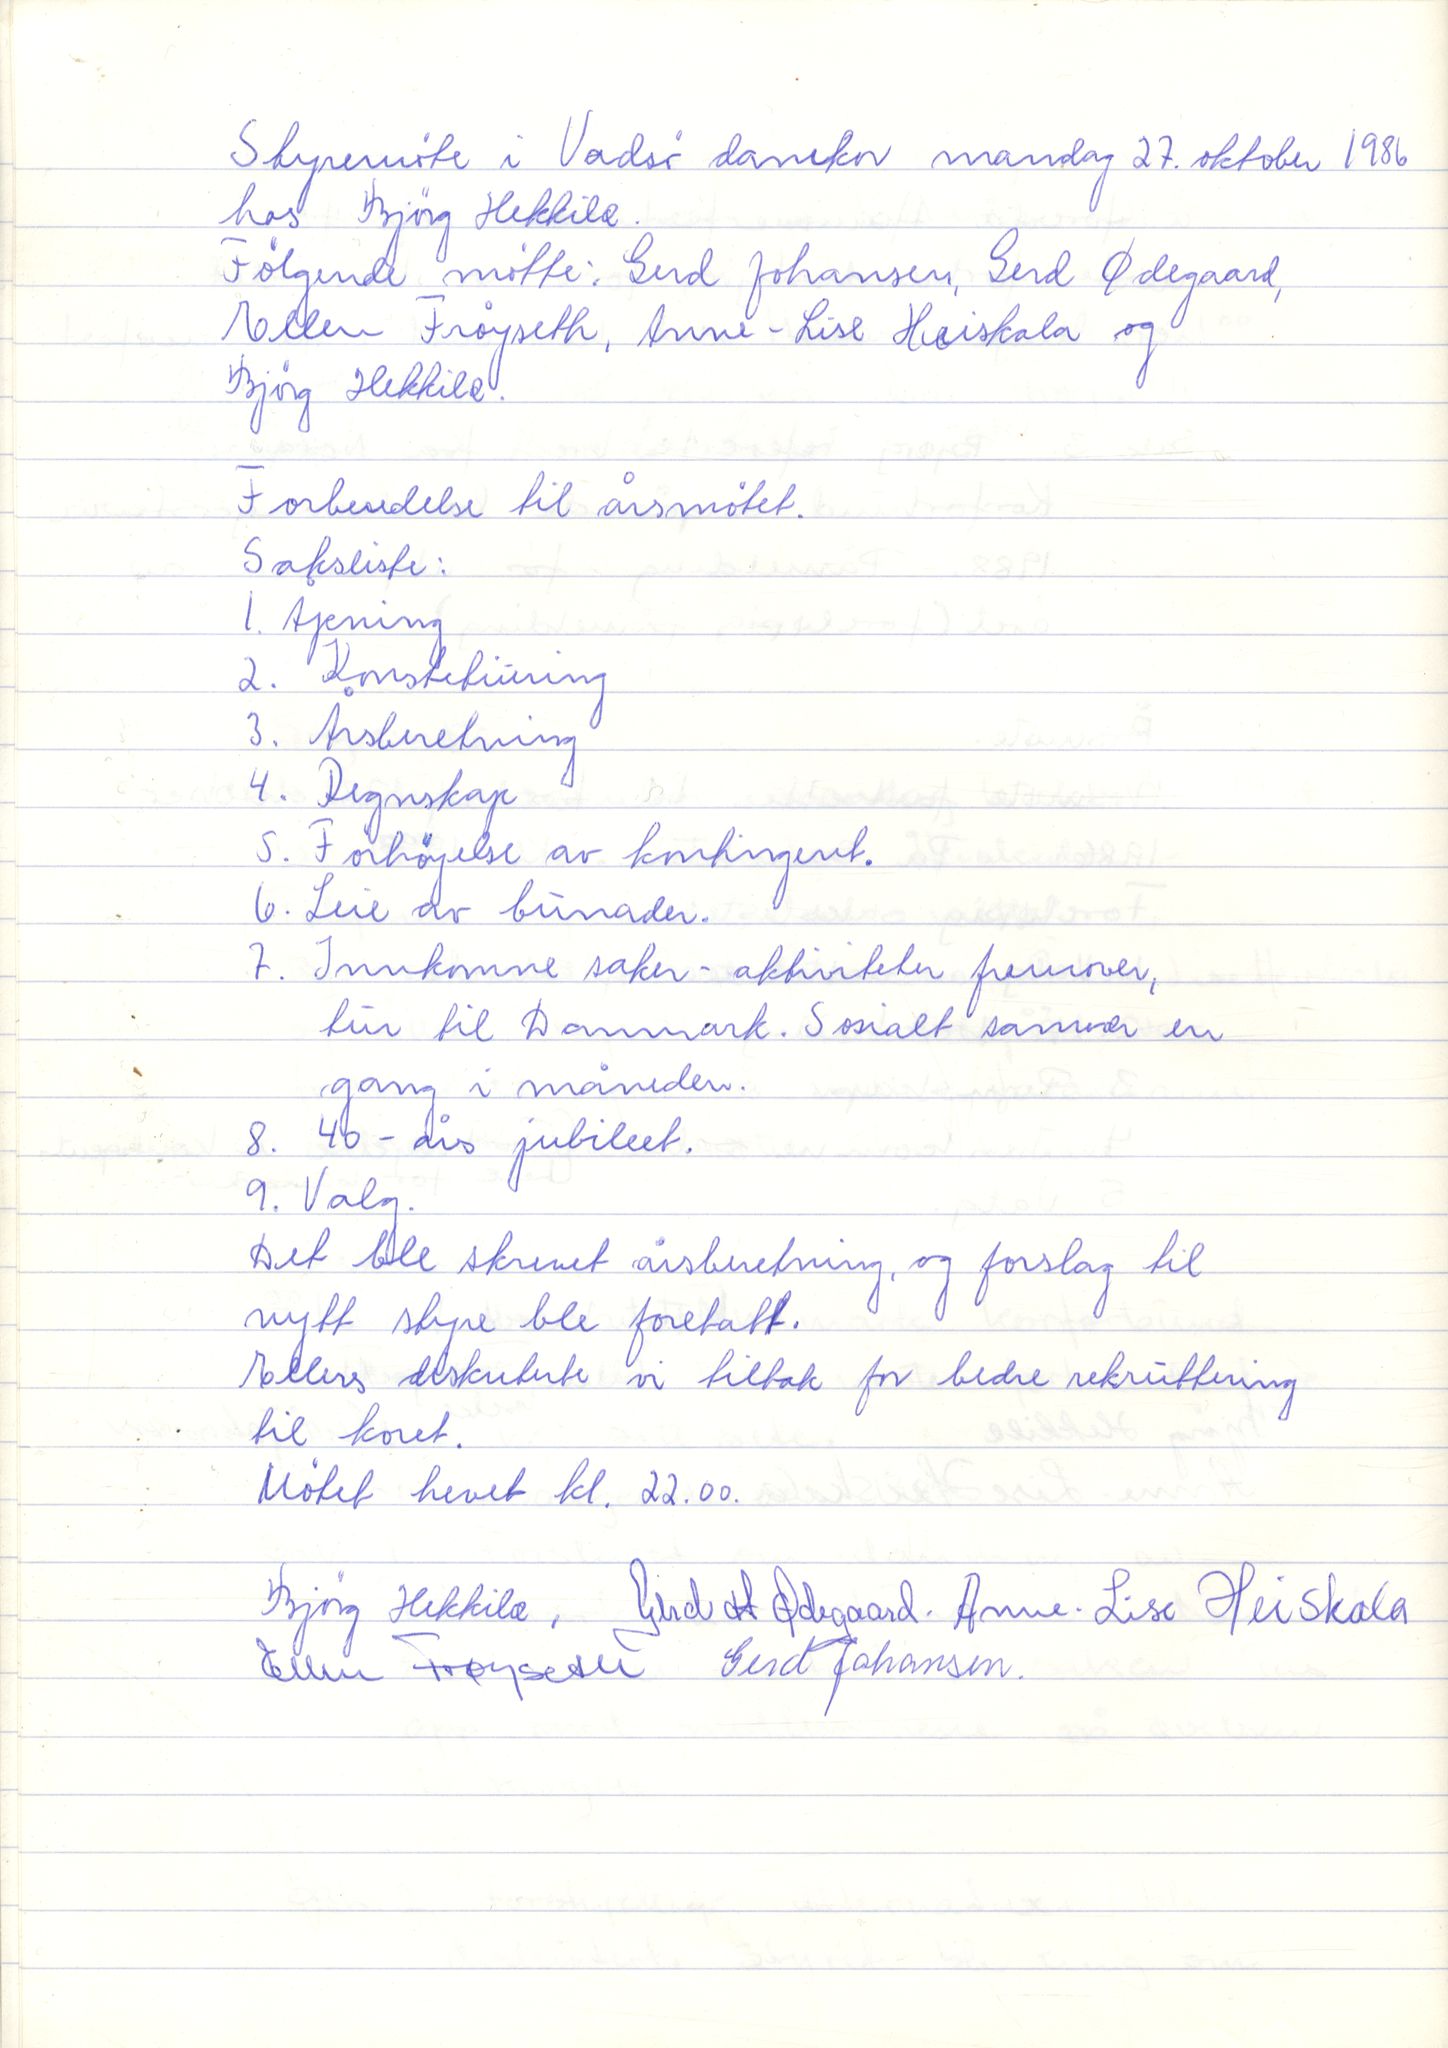 Styremöte i Vadsö damekor mandag 27. oktober 1986
hos Björg Hekkilæ.
Fölgende mötte: Gerd Johansen, Gerd Ødegaard,
Ellen Fröyseth, Anne-Lise Heiskala og
Björg Hekkilæ.
Forberedelse til årsmötet.
Saksliste:
1. Åpning
2. Konstetuering
3. Årsberetning
4. Regnskap
5. Förhöyelse av kontingent.
6. Leie av bunader.
7. Innkomne saker - aktiviteter fremover,
tur til Danmark. Sosialt samvær en
gang i måneden.
8. 40-års jubileet.
9. Valg.
Det ble skrevet årsberetning, og forslag til
nytt styre ble foretatt.
Ellers diskuterte vi tiltak for bedre rekruttering
til koret.
Mötet hevet kl. 22.00.
Björg Hekkilæ, Gerd Ødegaard. Anne-Lise Heiskala
Ellen Frøyseth Gerd Johansen.